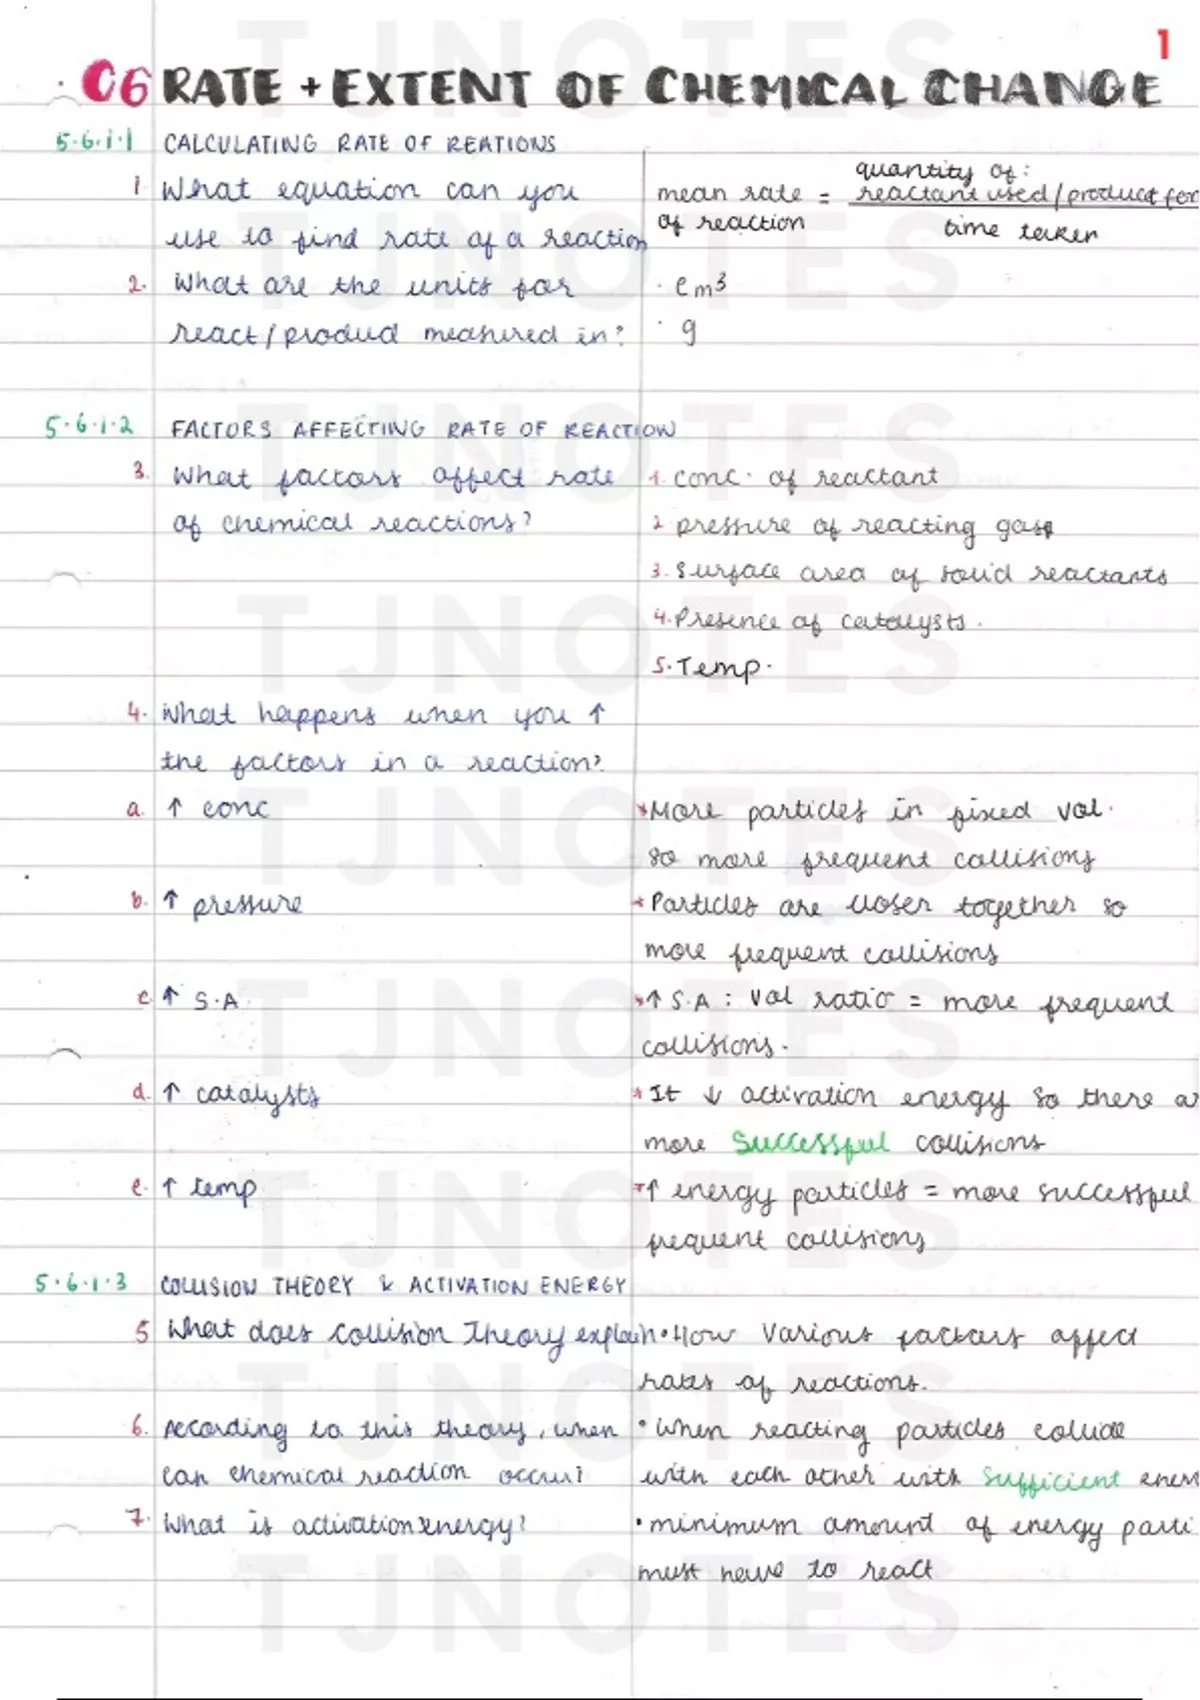 1
C6 RATE + EXTENT OF CHEMICAL CHANGE
5.6.1.1 CALCULATING RATE OF REATIONS
1. What equation can you use to find rate of a reaction
mean rate of reaction = quantity of: reactant used / product for
time taken
2. What are the units for
react / product measured in?
· cm³
· g
5.6.1.2 FACTORS AFFECTING RATE OF REACTION
3. What factors affect rate
of chemical reactions?
1. conc. of reactant
2 pressure of reacting gase
3. Surface area of solid reactants
4. Presence of catalysts.
5. Temp.
4. What happens when you ↑
the factors in a reaction?
a. ↑ conc
* More particles in fixed vol.
so more frequent collisions
b. ↑ pressure
* Particles are closer together so
more frequent collisions
c. ↑ S.A
* ↑ S.A : vol ratio = more frequent
collisions.
d. ↑ catalysts
* It ↓ activation energy so there a
more successful collisions
e. ↑ temp
* ↑ energy particles = more successful
frequent collisions
5.6.1.3 COLLISION THEORY & ACTIVATION ENERGY
5 What does Collision Theory explain
• How various factors affect
rates of reactions.
6. According to this theory, when
can chemical reaction occur?
• When reacting particles collide
with each other with sufficient ener
7. What is activation energy?
• minimum amount of energy parti
must have to react
TJNOTES
TJNOTES
TJNOTES
TJNOTES
TJNOTES
TJNOTES
TJNOTES
TJNOTES
TJNOTES